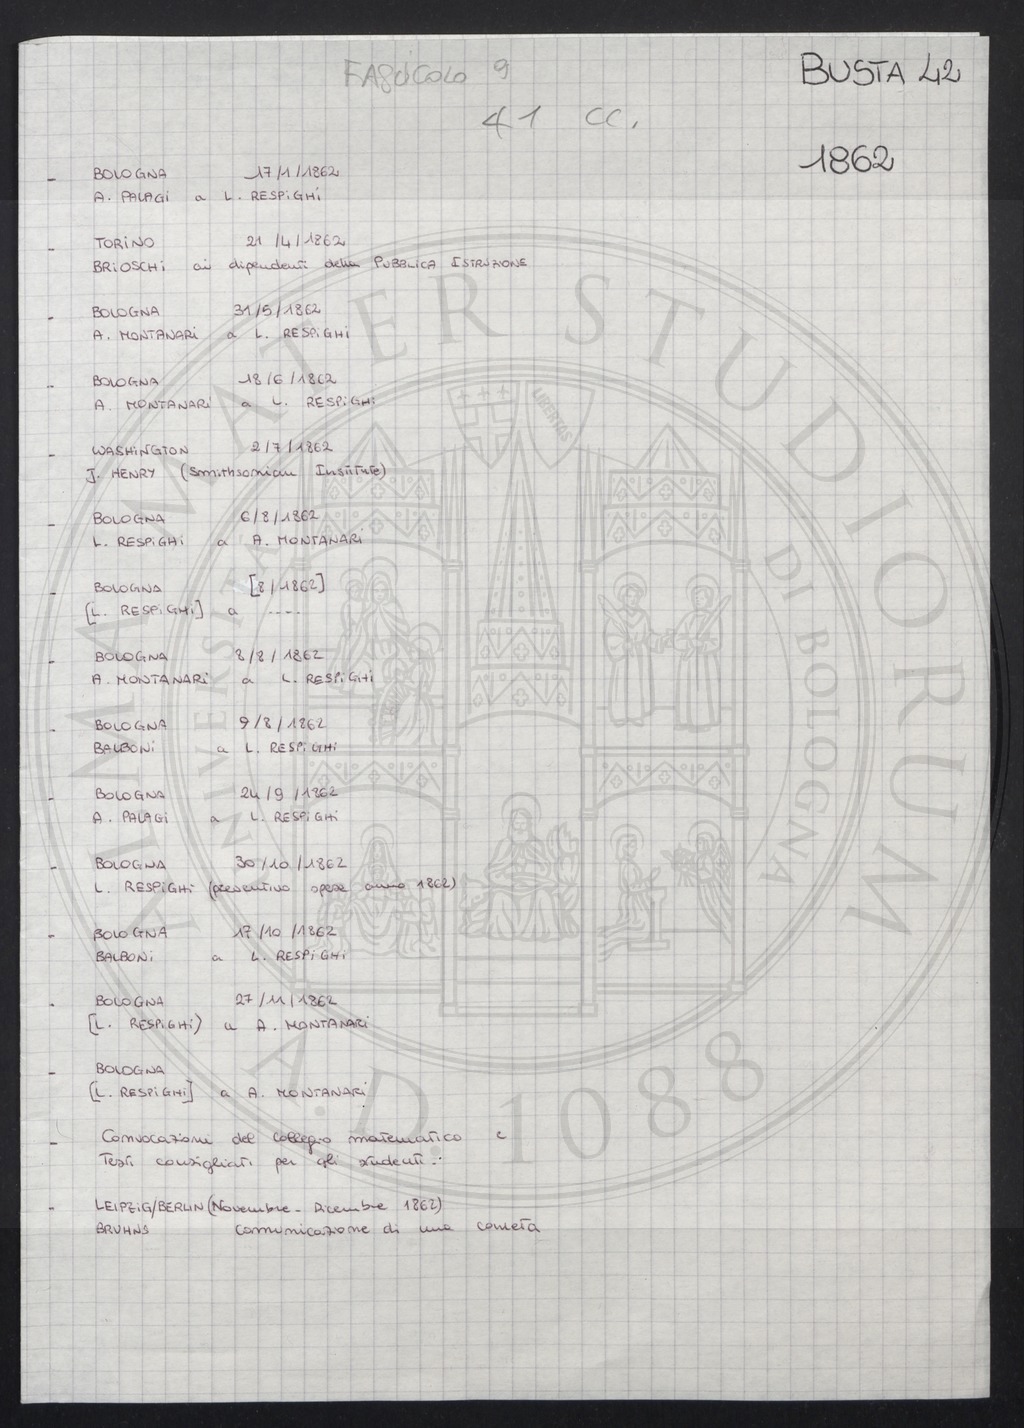 FASCICOLO 9
BUSTA 42
41 cc.
1862
- BOLOGNA 17/1/1862
A. PALAGI a L. RESPIGHI
- TORINO 21/4/1862
BRIOSCHI ai dipendenti della PUBBLICA ISTRUZIONE
- BOLOGNA 31/5/1862
A. MONTANARI a L. RESPIGHI
- BOLOGNA 18/6/1862
A. MONTANARI a L. RESPIGHI
- WASHINGTON 2/7/1862
J. HENRY (Smithsonian Institute)
- BOLOGNA 6/8/1862
L. RESPIGHI a A. MONTANARI
- BOLOGNA [8/1862]
[L. RESPIGHI] a ----
- BOLOGNA 8/8/1862
A. MONTANARI a L. RESPIGHI
- BOLOGNA 9/8/1862
BALBONI a L. RESPIGHI
- BOLOGNA 24/9/1862
A. PALAGI a L. RESPIGHI
- BOLOGNA 30/10/1862
L. RESPIGHI (preventivo spese anno 1862)
- BOLOGNA 17/10/1862
BALBONI a L. RESPIGHI
- BOLOGNA 27/11/1862
[L. RESPIGHI) a A. MONTANARI
- BOLOGNA
[L. RESPIGHI] a A. MONTANARI
- Convocazioni del collegio matematico e
Testi consigliati per gli studenti.
- LEIPZIG/BERLIN (Novembre - Dicembre 1862)
BRUHNS comunicazione di una cometa
ALMA MATER STUDIORUM
UNIVERSITÀ DI BOLOGNA
LIBERTAS
A.D. 1088